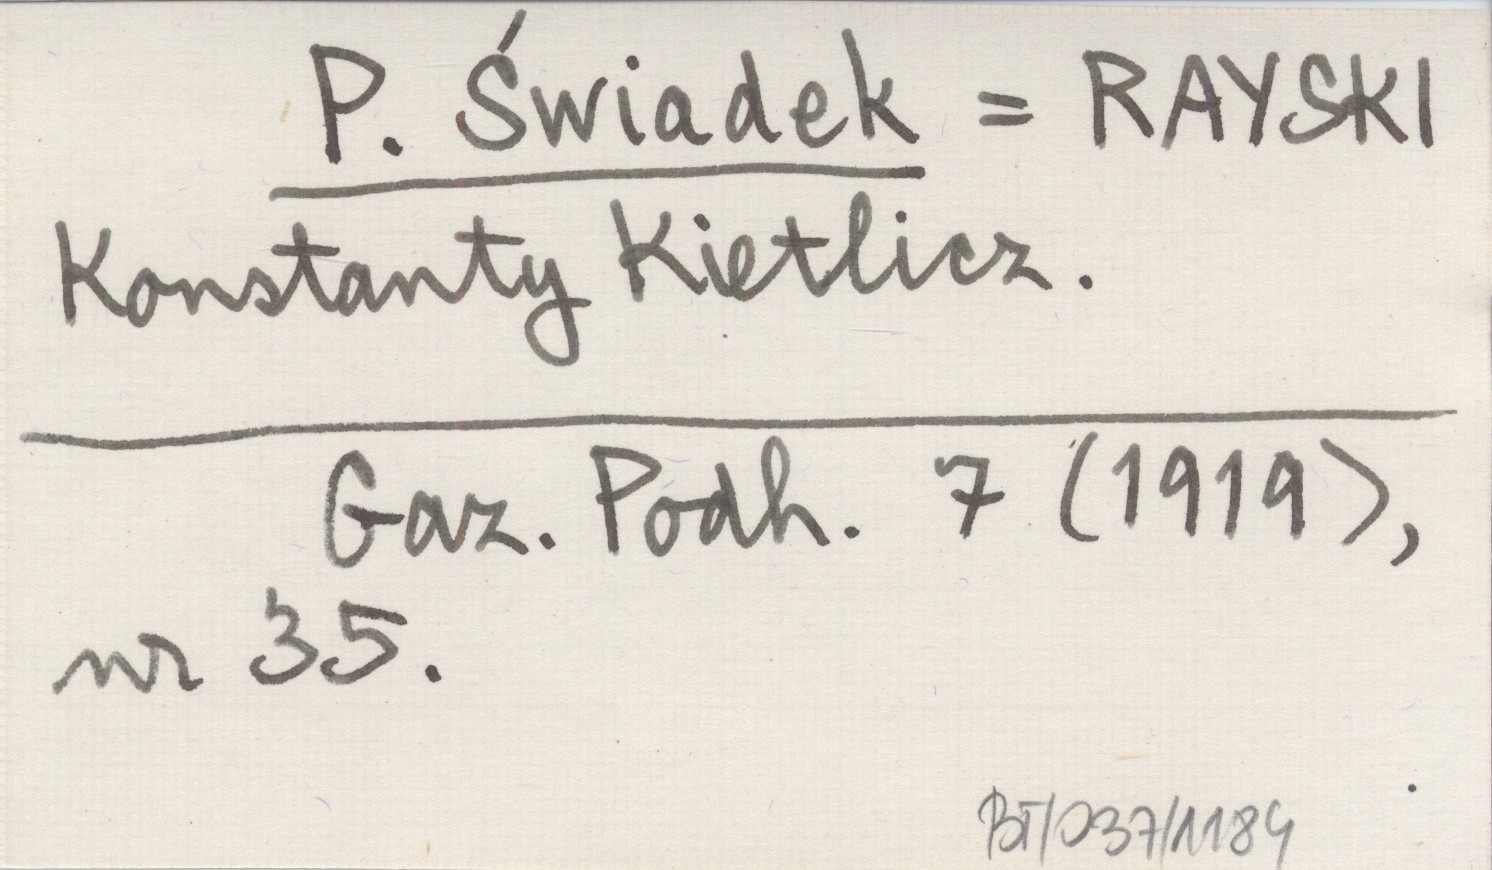 P. Świadek = RAYSKI
Konstanty Kietlicz.
Gaz. Podh. 7 (1919),
nr 35.
BT/037/1184